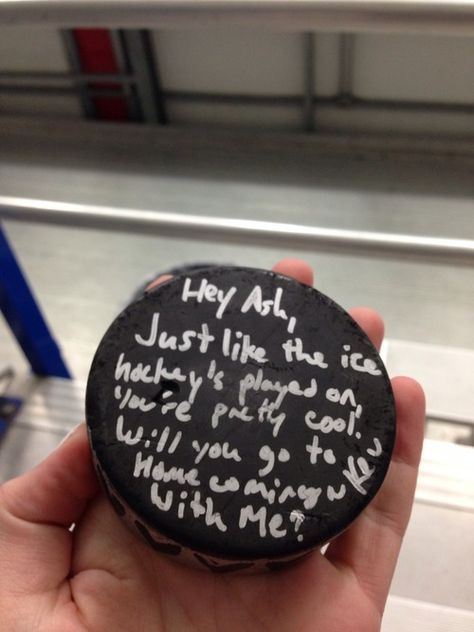 Hey Ash,
Just like the ice
hockey's played on,
You're pretty cool!
Will you go to
Home coming
With Me?
Kev